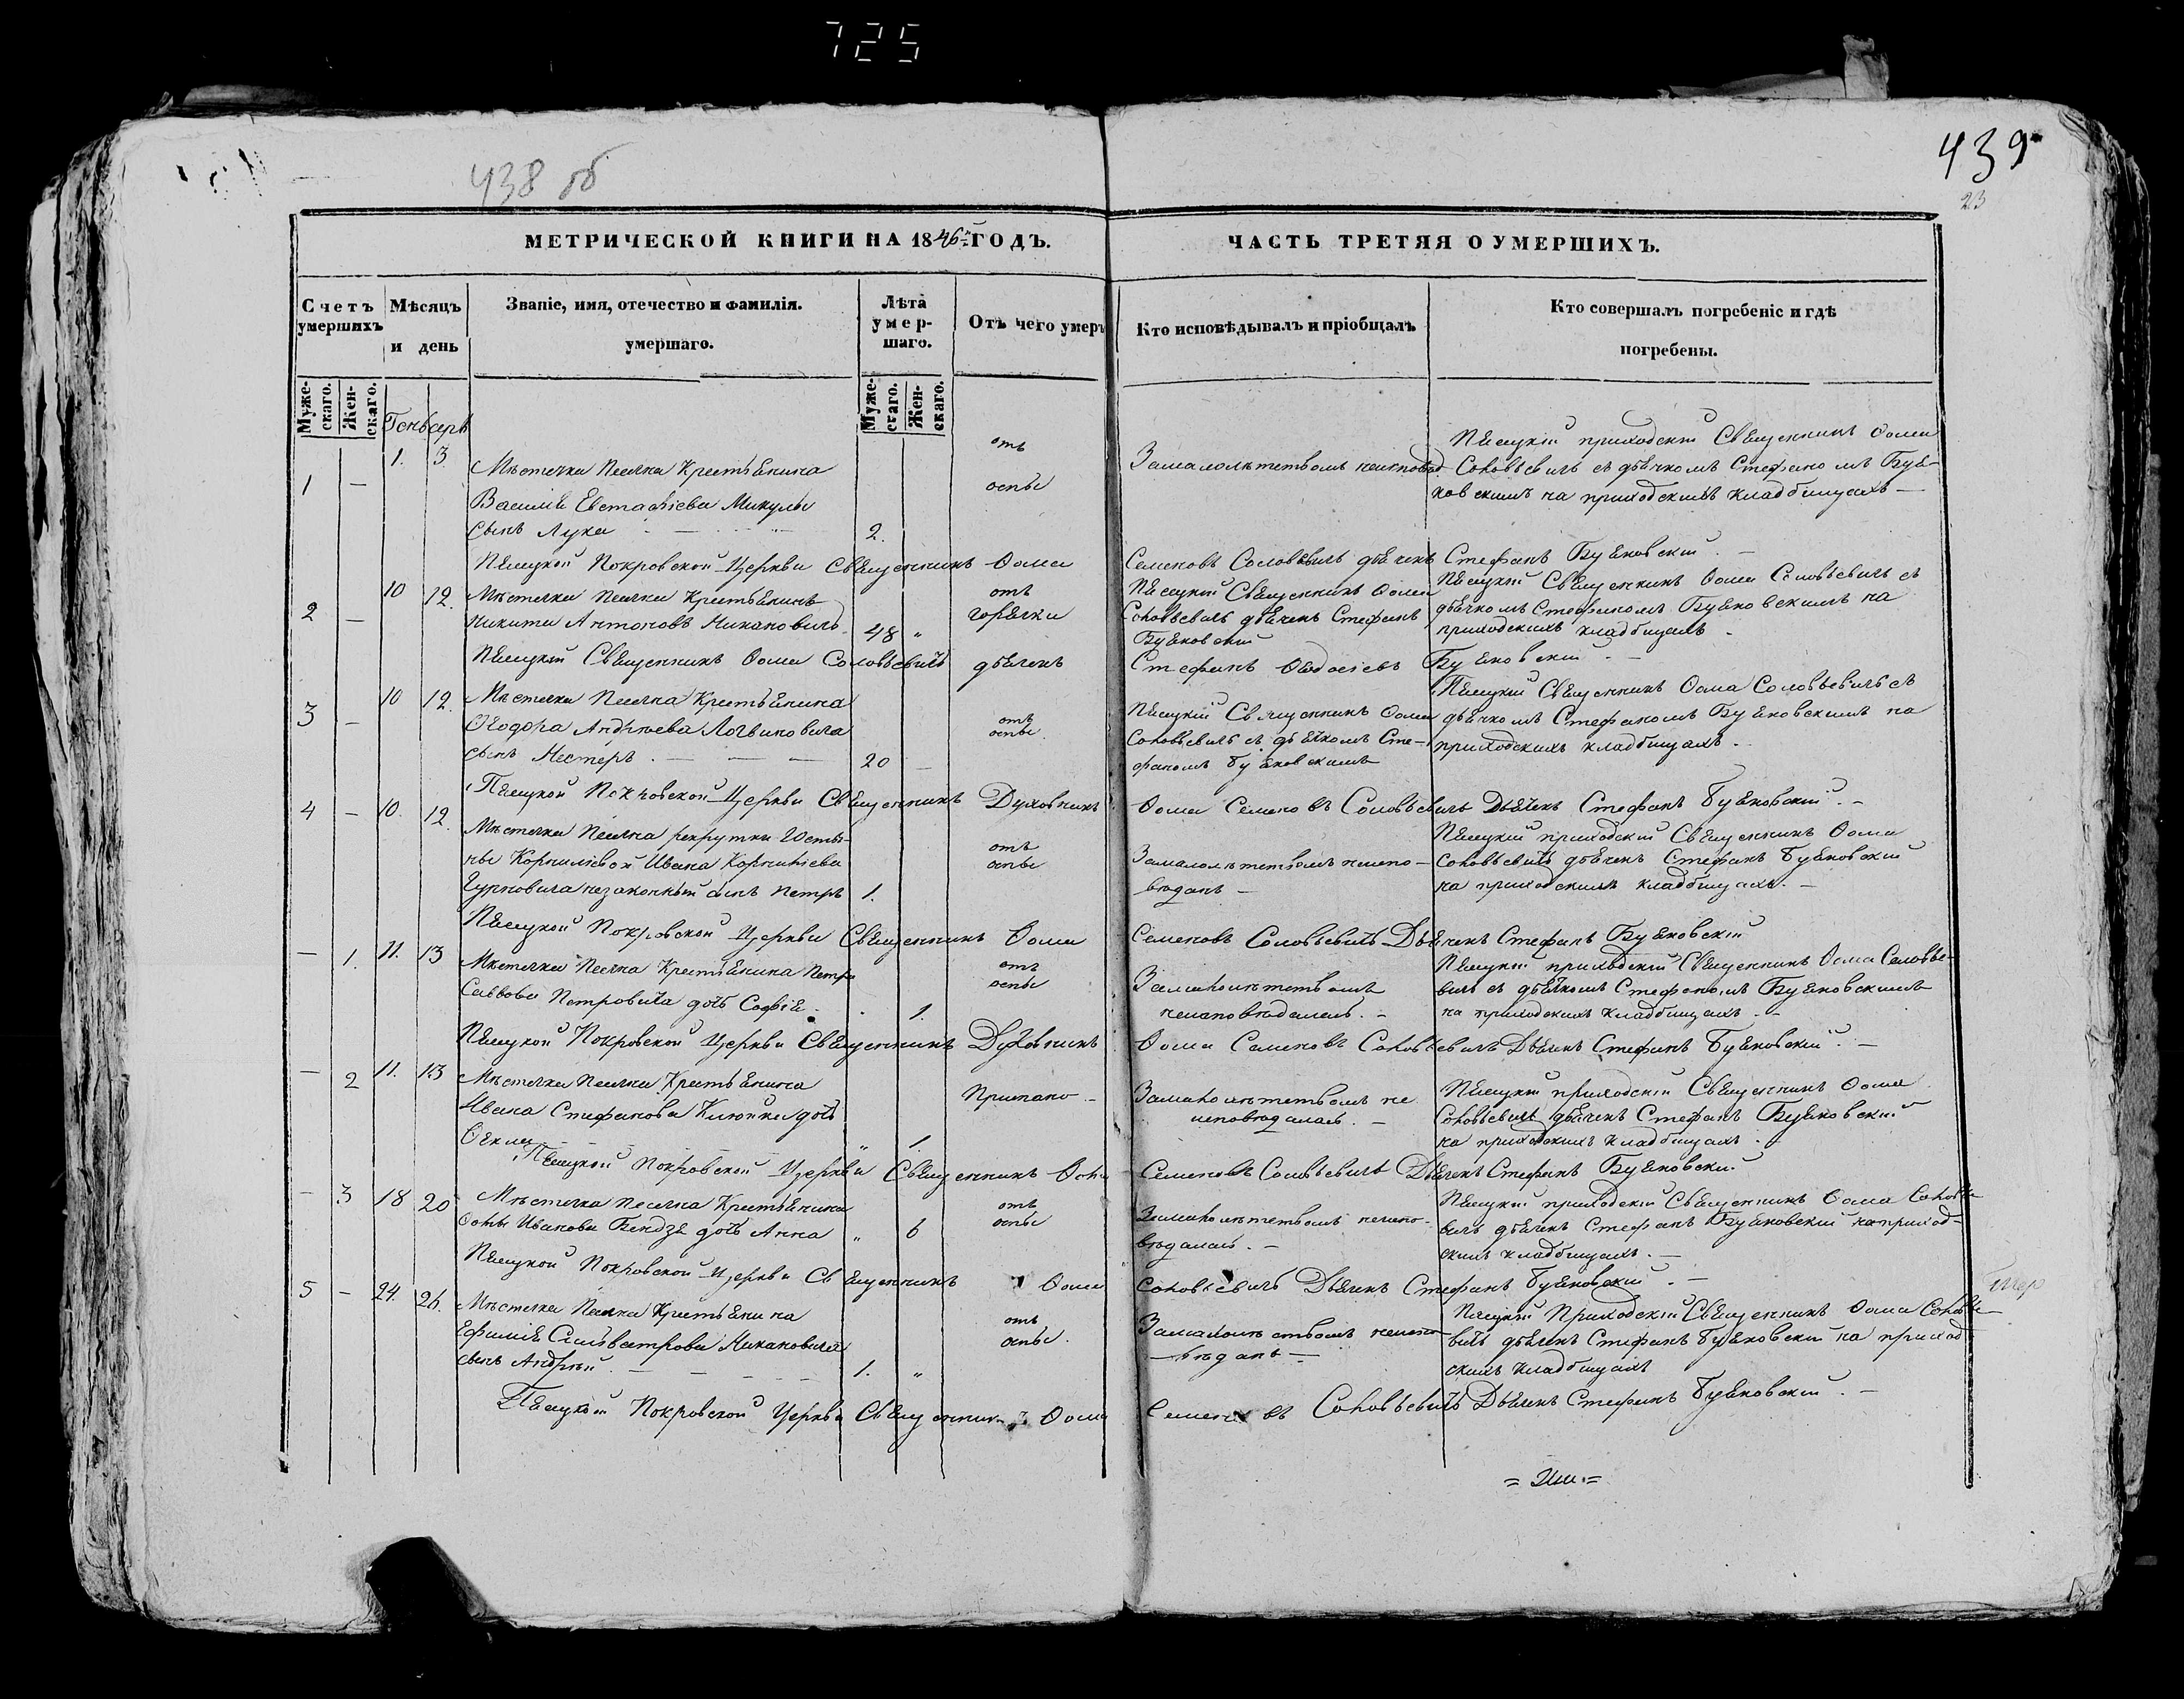 725
438 об
439
23
МЕТРИЧЕСКОЙ КНИГИ НА 1846й ГОДЪ.
ЧАСТЬ ТРЕТЯЯ О УМЕРШИХЪ.
Счетъ умершихъ
Мѣсяцъ и день
Званіе, имя, отечество и фамилія.
умершаго.
Лѣта умер-
шаго.
Отъ чего умеръ
Кто исповѣдывалъ и пріобщалъ
Кто совершалъ погребеніе и гдѣ
погребены.
Муже-
скаго.
Жен-
скаго.
Муже-
скаго.
Жен-
скаго.
Генварь
1 — 1. 3
Мѣстечка Песчка Крестьянина
Василія Евстафіева Микулы
сынъ Лука 2.
отъ
оспы
Замалолѣтствомъ
Пѣсуцкій приходскій Священникъ Ѳома
Соловьевичь съ дьячкомъ Стефаномъ Буя-
ковскимъ на приходскихъ кладбищахъ —
Покровской Церкви Священникъ Ѳома Семеновъ Соловьевичь дьячекъ Стефанъ Буяковскій. —
2 — 10 12.
Мѣстечка Песчка Крестьянинъ
Никита Антоновъ Никановичь 48 "
отъ
горячки
Священникъ Ѳома
Соловьевичь дьячекъ Стефанъ
Буяковскій
Священникъ Ѳома Соловьевичь съ
дьячкомъ Стефаномъ Буяковскимъ на
приходскихъ кладбищахъ.
Священникъ Ѳома Соловьевичь дьячекъ Стефанъ Ѳеодосіевъ Буяковскій. —
3 — 10 12.
Мѣстечка Песчка Крестьянина
Ѳеодора Андреева Логвиновича
сынъ Нестеръ. — — — 20 —
отъ
оспы.
Священникъ Ѳома
Соловьевичь съ дьячкомъ Сте-
фаномъ Буяковскимъ
Священникъ Ѳома Соловьевичь съ
дьячкомъ Стефаномъ Буяковскимъ на
приходскихъ кладбищахъ.
Покровской Церкви Священникъ Духовникъ Ѳома Семеновъ Соловьевичь Дьячекъ Стефанъ Буяковскій. —
4 — 10. 12.
Мѣстечка Песчка рекрутки
Ивана
незаконный сынъ Петръ 1.
отъ
оспы
Замалолѣтствомъ неиспо-
вѣданъ —
приходскій Священникъ Ѳома
Соловьевичь дьячекъ Стефанъ Буяковскій
на приходскихъ кладбищахъ. —
Покровской Церкви Священникъ Ѳома Семеновъ Соловьевичь Дьячекъ Стефанъ Буяковскій
— 1. 11. 13
Мѣстечка Песчка Крестьянина Петра
Саввова Петровича дочь Софія. 1.
отъ
оспы
Замалолѣтствомъ
неисповѣдалась. —
приходскій Священникъ Ѳома Соловье-
вичь съ дьячкомъ Стефаномъ Буяковскимъ
на приходскихъ кладбищахъ. —
Покровской Церкви Священникъ Духовникъ Ѳома Семеновъ Соловьевичь Дьячекъ Стефанъ Буяковскій. —
— 2 11. 13
Мѣстечка Песчка Крестьянина
Ивана Стефанова дочь
Ѳекла " 1.
Замалолѣтствомъ не
исповѣдалась. —
приходскій Священникъ Ѳома
Соловьевичь дьячекъ Стефанъ Буяковскій
на приходскихъ кладбищахъ. —
Покровской Церкви Священникъ Ѳома Семеновъ Соловьевичь Дьячекъ Стефанъ Буяковскій
— 3 18 20
Мѣстечка Песчка Крестьянина
Ѳомы Иванова Бендзы дочь Анна " 6
отъ
оспы
Замалолѣтствомъ неиспо-
вѣдалась. —
приходскій Священникъ Ѳома Соловье-
вичь дьячекъ Стефанъ Буяковскій наприход-
скихъ кладбищахъ. —
Покровской Церкви Священникъ Ѳома Соловьевичь Дьячекъ Стефанъ Буяковскій. —
5 — 24. 26.
Мѣстечка Песчка Крестьянина
Ефимія Сильвестрова Никановича
сынъ Андрей. 1. "
отъ
оспы.
Замалолѣтствомъ неиспо-
вѣданъ —
Приходскій Священникъ Ѳома Соловье-
вичь дьячекъ Стефанъ Буяковскій на приход-
скихъ кладбищахъ
Покровской Церкви Священникъ Ѳома Семеновъ Соловьевичь Дьячекъ Стефанъ Буяковскій. —